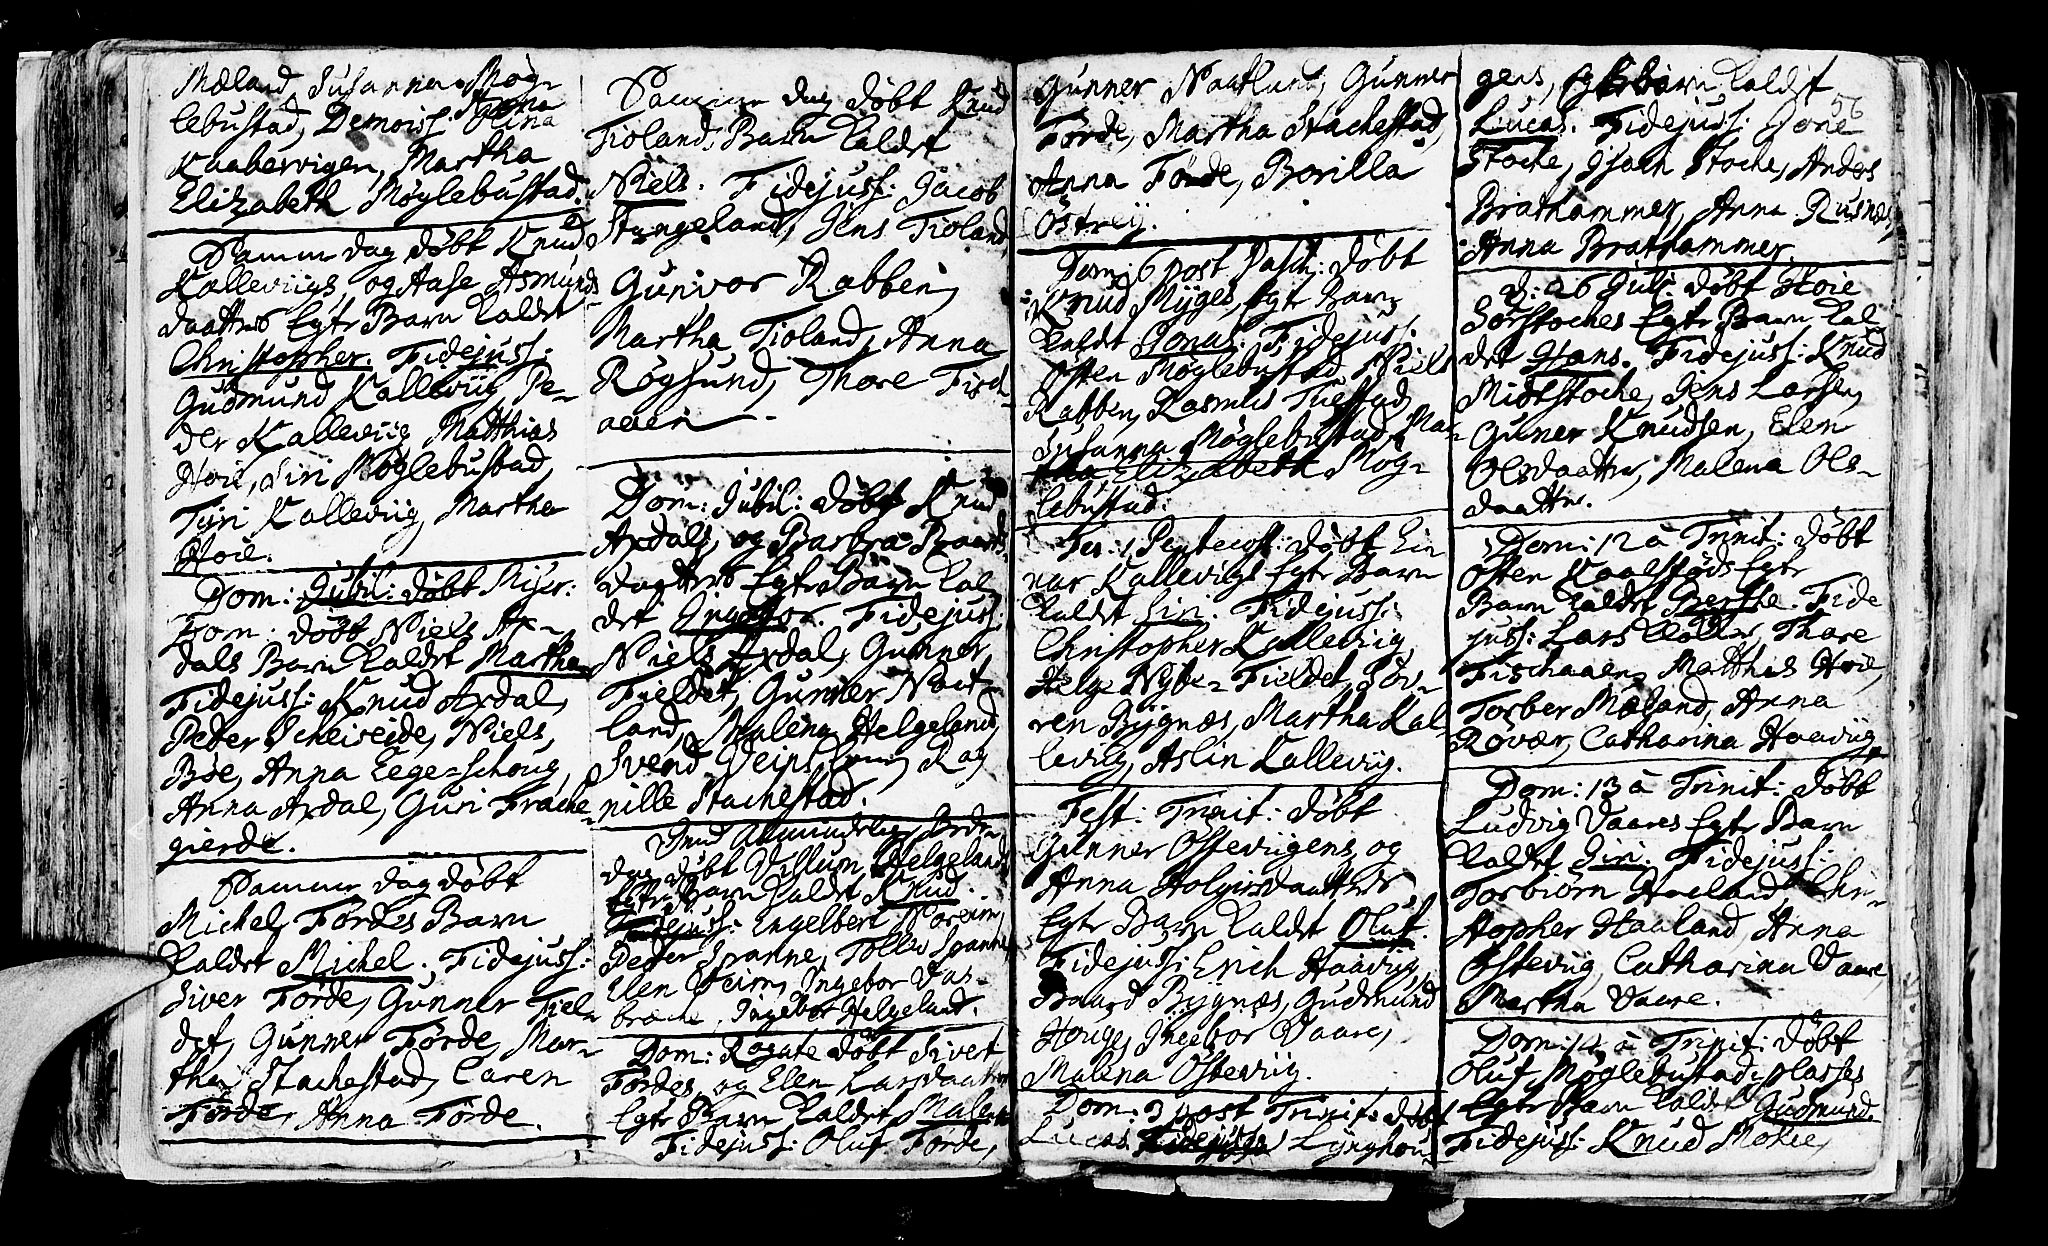 Mæland, Susanna Møg-
lebustad, Demois: Stina
Olina
Kaabervigen, Martha
Elizabeth Møglebustad.
Samme dag døbt Knud
Kallevigs og Aase Asmunds
daatters Egte Barn kaldet
Christopher. Fidejuss:
Gudmund Kalleviig, Pe-
der Kalleviig, Matthias
Hoie, Siri Møglebustad,
Tyri Kalleviig, Martha
Hoie.
Dom: Jubil: døbt Miser:
Dom: døbt Niels Ax-
dals Barn kaldet Martha
Fidejuss: Knud Axdal,
Peder Scheiseide, Niels
Bøe, Anna Eege-schoug,
Anna Axdal, Guri Frache-
gierde.
Samme dag døbt
Michel Førdes Barn
kaldet Michel. Fidejuss:
Siver Førde, Gunner Fiel-
det, Gunner Førde, Mar-
tha Stachestad, Caren
Førde, Anna Førde.
Samme dag døbt Knud
Tiolands Barn kaldet
Niels. Fidejuss: Jacob
Stangeland, Jens Tioland
Gunvor Rabben,
Martha Tioland, Anna
Røgsund, Thore Fisch-
aaen
Dom: Jubil: døbt Knud
Axdals og Barbra Baards
daatters Egte Barn kal
det Ingebor. Fidejuss:
Niels Axdal, Gunner
Fieldet, Gunner Noet-
land, Malena Helgeland,
Svend Rag
nille Stachestad.
Almindelig Bede-
dag døbt Villum Helgelands
Egte Barn kaldet Knud.
Fidejuss: Engelbert Noreim,
Peder Spanne, Tollev Spanne,
Elen Ingebor Vas-
brecke, Ingebor Helgeland.
Dom: Rogate døbt Sivert
Førdes og Elen Larsdaatters
Egte Barn kaldet Malena
Fidejuss: Oluf Førde,
Gunner Naatland, Gunner
Førde, Martha Stachestad,
Anna Førde, Borilla
Østrej.
Dom: 6 post Pasch: døbt
Knud Myges Egte Barn
kaldet Jonas. Fidejuss:
Osten Møglebustad, Niels
Rabben, Rasmus Tuestad,
Susanna Møglebustad, Mar-
tha Elizabeth Møg-
lebustad.
Fer: 1 Pentecost: døbt Ei
nar Kallevigs Egte Barn
kaldet Siri. Fidejuss:
Christopher Kallevig,
Helge Nybe-Fieldet, Sør-
ren Bygnæs, Martha Kal
levig, Aslin Kallevig.
Fest: Trinit: døbt
Gunner Ostevigens og
Anna Holgiersdaatters
Egte Barn kaldet Oluf.
Fidejuss: Erich Haavig,
Baard Bygnæs, Gudmund
Houge, Ingebor Vaare,
Malena Osteviig.
Dom: 3 post Trinit: døbt
Lucas Fidejuss Lynghou-
gens, Egte barn kaldet
56
Lucas. Fidejuss: Jone
Stoche, Isach Stoche, Anders
Brathammer, Anna Rusnæs,
Anna Brathammer.
d: 26 Juli døbt Hoie
Sørstoches Egte Barn kal
det Hans. Fidejuss: Knud
Midtstoche, Jens Larsen,
Guner Knudsen, Elen
Olsdaatter, Malena Ols-
daatter.
Dom: 12 à Trinit: døbt
Osten Kaalstøds Egte
Barn kaldet Berthe. Fide
juss: Lars Thore
Fischaaen, Matthis Hoie,
Torber Mæland, Anna
Rovær, Catharina Haavig.
Dom: 13 à Trinit: døbt
Ludvig Vaares Egte Barn
kaldet Siri. Fidejuss:
Torbiørn Haaland, Chri-
stopher Haaland, Anna
Ostevig, Catharina Vaare,
Martha Vaare.
Dom: 14 à Trinit: døbt
Oluf Møglebustad-plasses
Egte Barn kaldet Gudmund.
Fidejuss: Knud Mokie,